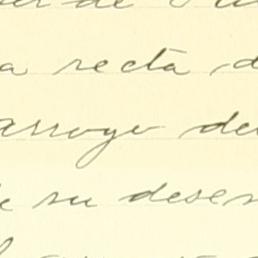 de
a recta
arroyo del
su desem